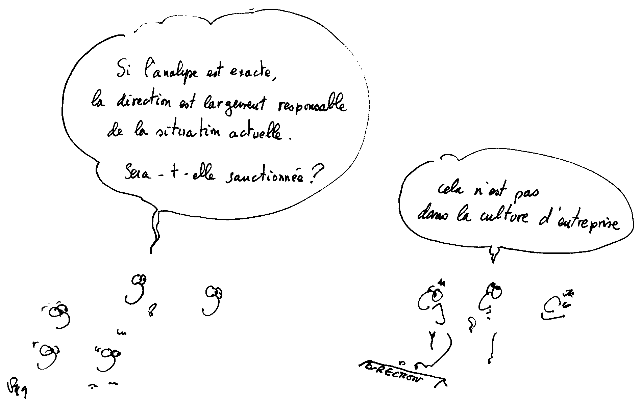 Si l'analyse est exacte,
la direction est largement responsable
de la situation actuelle.
Sera-t-elle sanctionnée ?
cela n'est pas
dans la culture d'entreprise
DIRECTION